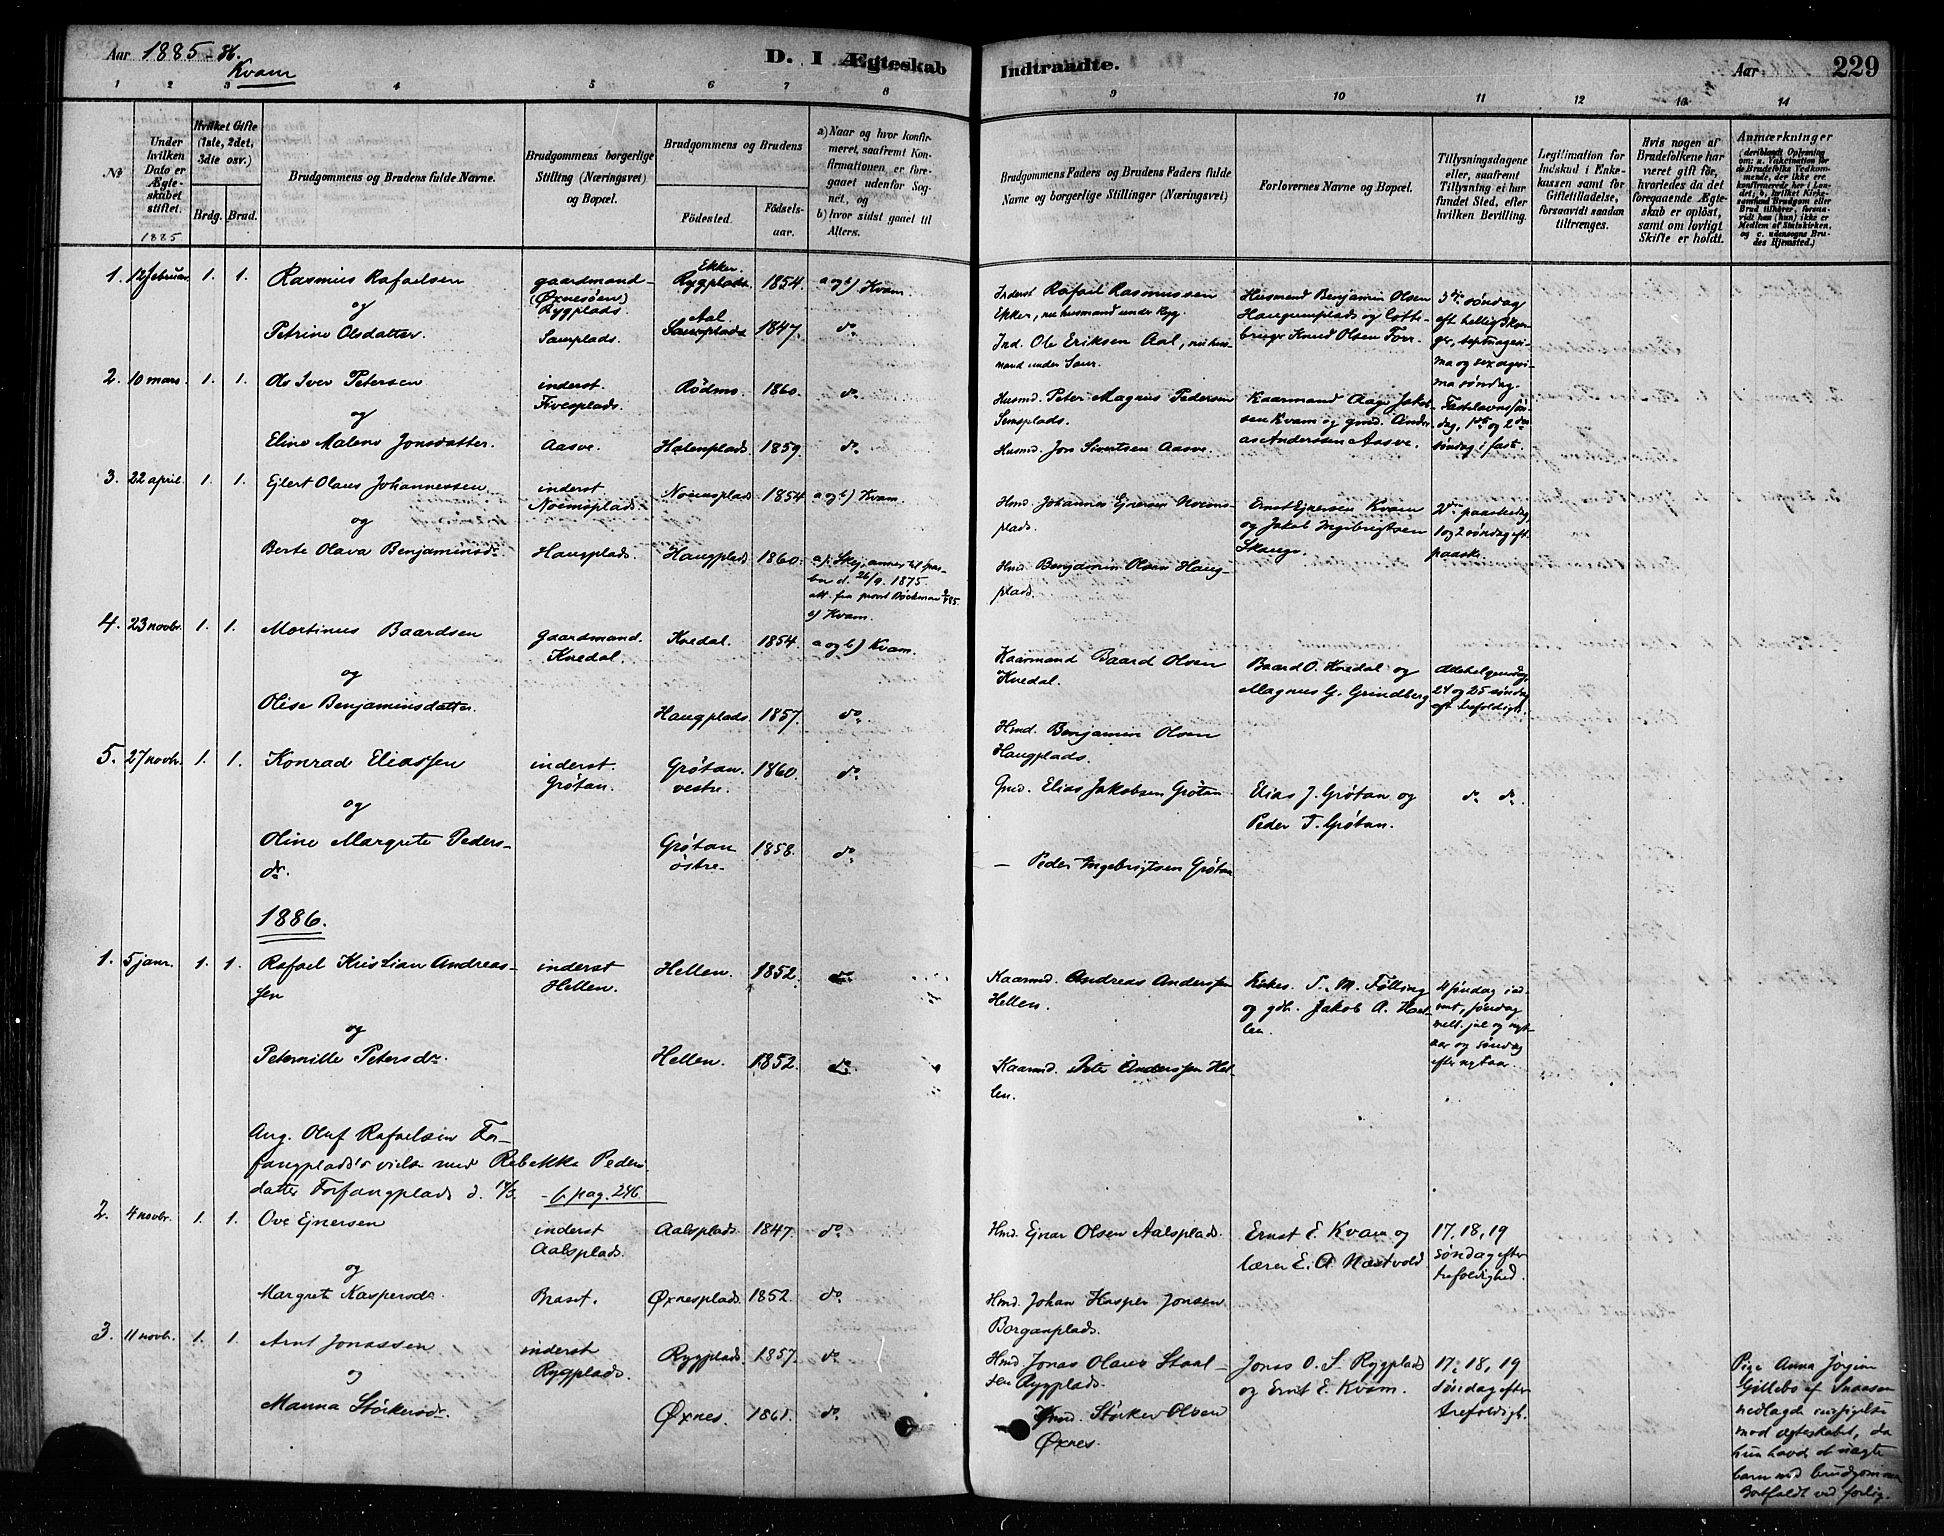 Aar 1885-86.
Kvam
D. I Ægteskab
Indtraadte.
Aar
229
1 2 3 4 5 6 7 8
9 10 11 12 13 14
No
Under hvilken Dato er Ægteskabet stiftet.
1885
Hvilket Gifte (1ste, 2det, 3dte osv.)
Brdg. Brud.
Brudgommens og Brudens fulde Navne.
Brudgommens borgerlige Stilling (Næringsvei) og Bopæl.
Brudgommens og Brudens
Fødested.
Fødselsaar.
a) Naar og hvor konfirmeret, saafremt Konfirmationen er foregaaet udenfor Sognet, og
b) hvor sidst gaaet til Alters.
Brudgommens Faders og Brudens Faders fulde Navne og borgerlige Stillinger (Næringsvei)
Forlovernes Navne og Bopæl.
Tillysningsdagene eller, saafremt Tillysning ei har fundet Sted, efter hvilken Bevilling.
Legitimation for Indskud i Enkekassen samt for Giftetilladelse, forsaavidt saadan tiltrænges.
Hvis nogen af Brudefolkene har været gift før, hvorledes da det foregaaende Ægteskab er opløst, samt om lovligt Skifte er holdt.
Anmærkninger
1. 12 februar 1. 1. Rasmus Rafaelsen gaardmand (Øxnesøen) Rygplads Ekker Rygplads 1854 a og b) Kvam.
og
Petrine Olsdatter. Saurplads. Aal Saurplads 1847 do
Inderst Rafael Rasmussen
Ekker, nu husmand under Ryg.
Ind. Ole Eriksen Aal, nu husmand under Saur.
Husmend Benjamin Olsen
Haugumplads og
Knud Olsen
3die søndag
eft helligtrekonger, septuagesima og sexagesima søndag.
2. 10 mars. 1. 1. Ole Iver Petersen inderst. Rødmo. 1860. do
og
Eline Malene Jonsdatter. Aasve. Halemplads 1859 do
Husmd. Peter Magnus Pedersen
Semsplads.
Husmd. Jon Sivertsen Aasve.
Kaarmand Aage Jakobsen Kvam og gmd. Andreas Anderssen Aasve.
Fastelavnssøndag, 1ste og 2den søndag i fast.
3. 22 april. 1. 1. Ejlert Olaus Johannessen inderst Noemsplads Noemsplads 1854 a og b) Kvam.
og
Berte Olava Benjaminsdr Haugplads. Haugplads 1860.
d. 26/9. 1875
b) Kvam.
Hmd. Johannes Ejnersen Noemsplads.
Hmd. Benjamin Olsen Haugplads.
Ernst Ejnersen Kvam
og Jakob Ingebrigtsen
Skauge.
2den paaskedag
1 og 2 søndag eft. paaske.
4. 23 novbr. 1. 1. Mortinus Baardsen gaardmand. Knedal. Knedal. 1854 a og b) Kvam.
og
Olise Benjaminsdatter. Haugplads 1857. do
Kaarmand Baard Olsen
Knedal.
Hmd. Benjamin Olsen
Haugplads.
Baard O. Knedal og
Magnus G. Grindberg
allehelgensdag,
24 og 25 søndag
eft trefoldigh.
5. 27 novbr. 1. 1. Konrad Eliassen inderst. Grøtan. Grøtan. vestre. 1860. do
og
Oline Margrete Pedersdr. Grøtan østre. 1858. do
Gmd. Elias Jakobsen Grøtan
— Peder Ingebrigtsen Grøtan
Elias J. Grøtan og
Peder T. Grøtan.
do do.
1886.
1. 5 janr. 1. 1. Rafael Kristian Andreassen inderst Hellen. Hellen. 1852. do
og
Peternille Petersdr. Hellen. 1852. do
Kaarmd. Andreas Anderssen
Hellen.
Kaarmd. Peter Anderssen Hellen.
Kirkes. T. M. Følling
og gdb. Jakob A. Hellen.
4 søndag i advent, søndag mell. jul og nytaar og søndag efter nytaar.
Ang. Oluf Rafaelsen Forfangplads's vielse med Rebekka Pedersdatter Forfangplads d. - s. pag. 246
2. 4 novbr. 1. 1. Ove Ejnersen inderst Aalsplads. Aalsplads. 1847. do
og
Margrete Kaspersdr. Braset. Øxnesplads. 1852. do
Hmd. Ejnar Olsen Aalsplads.
Hmd. Johan Kasper Jonsen
Borganplads.
Ernst E. Kvam og
lærer E. A. Næstvold
17. 18, 19
søndag efter
trefoldighed.
3. 11 novbr. 1. 1. Arnt Jonassen inderst Rygplads. Rygplads. 1857. do
og
Manna Størkersdr. Øxnes. 1861. do
Hmd. Jonas Olaus Staalsen Rygplads.
Gmd. Størker Olsen
Øxnes.
Jonas O. S. Rygplads
og Ernst E. Kvam.
17. 18, 19
søndag efter
trefoldigh.
Pige Anna Jørgine
Gillebo af Snaasen
nedlagde indsigelse
mod ægteskabet, da
hun havde et uægte
barn med brudgommen
Bortfaldt ved forlig.